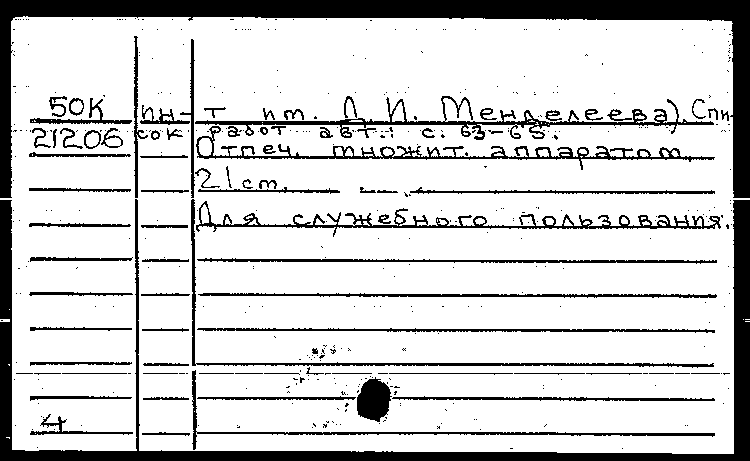 50К ин-т им. Д. И. Менделеева). Спи-
21206 сок работ авт.: с. 63-65.
Отпеч. множит. аппаратом.
21 см.
Для служебного пользования.
4